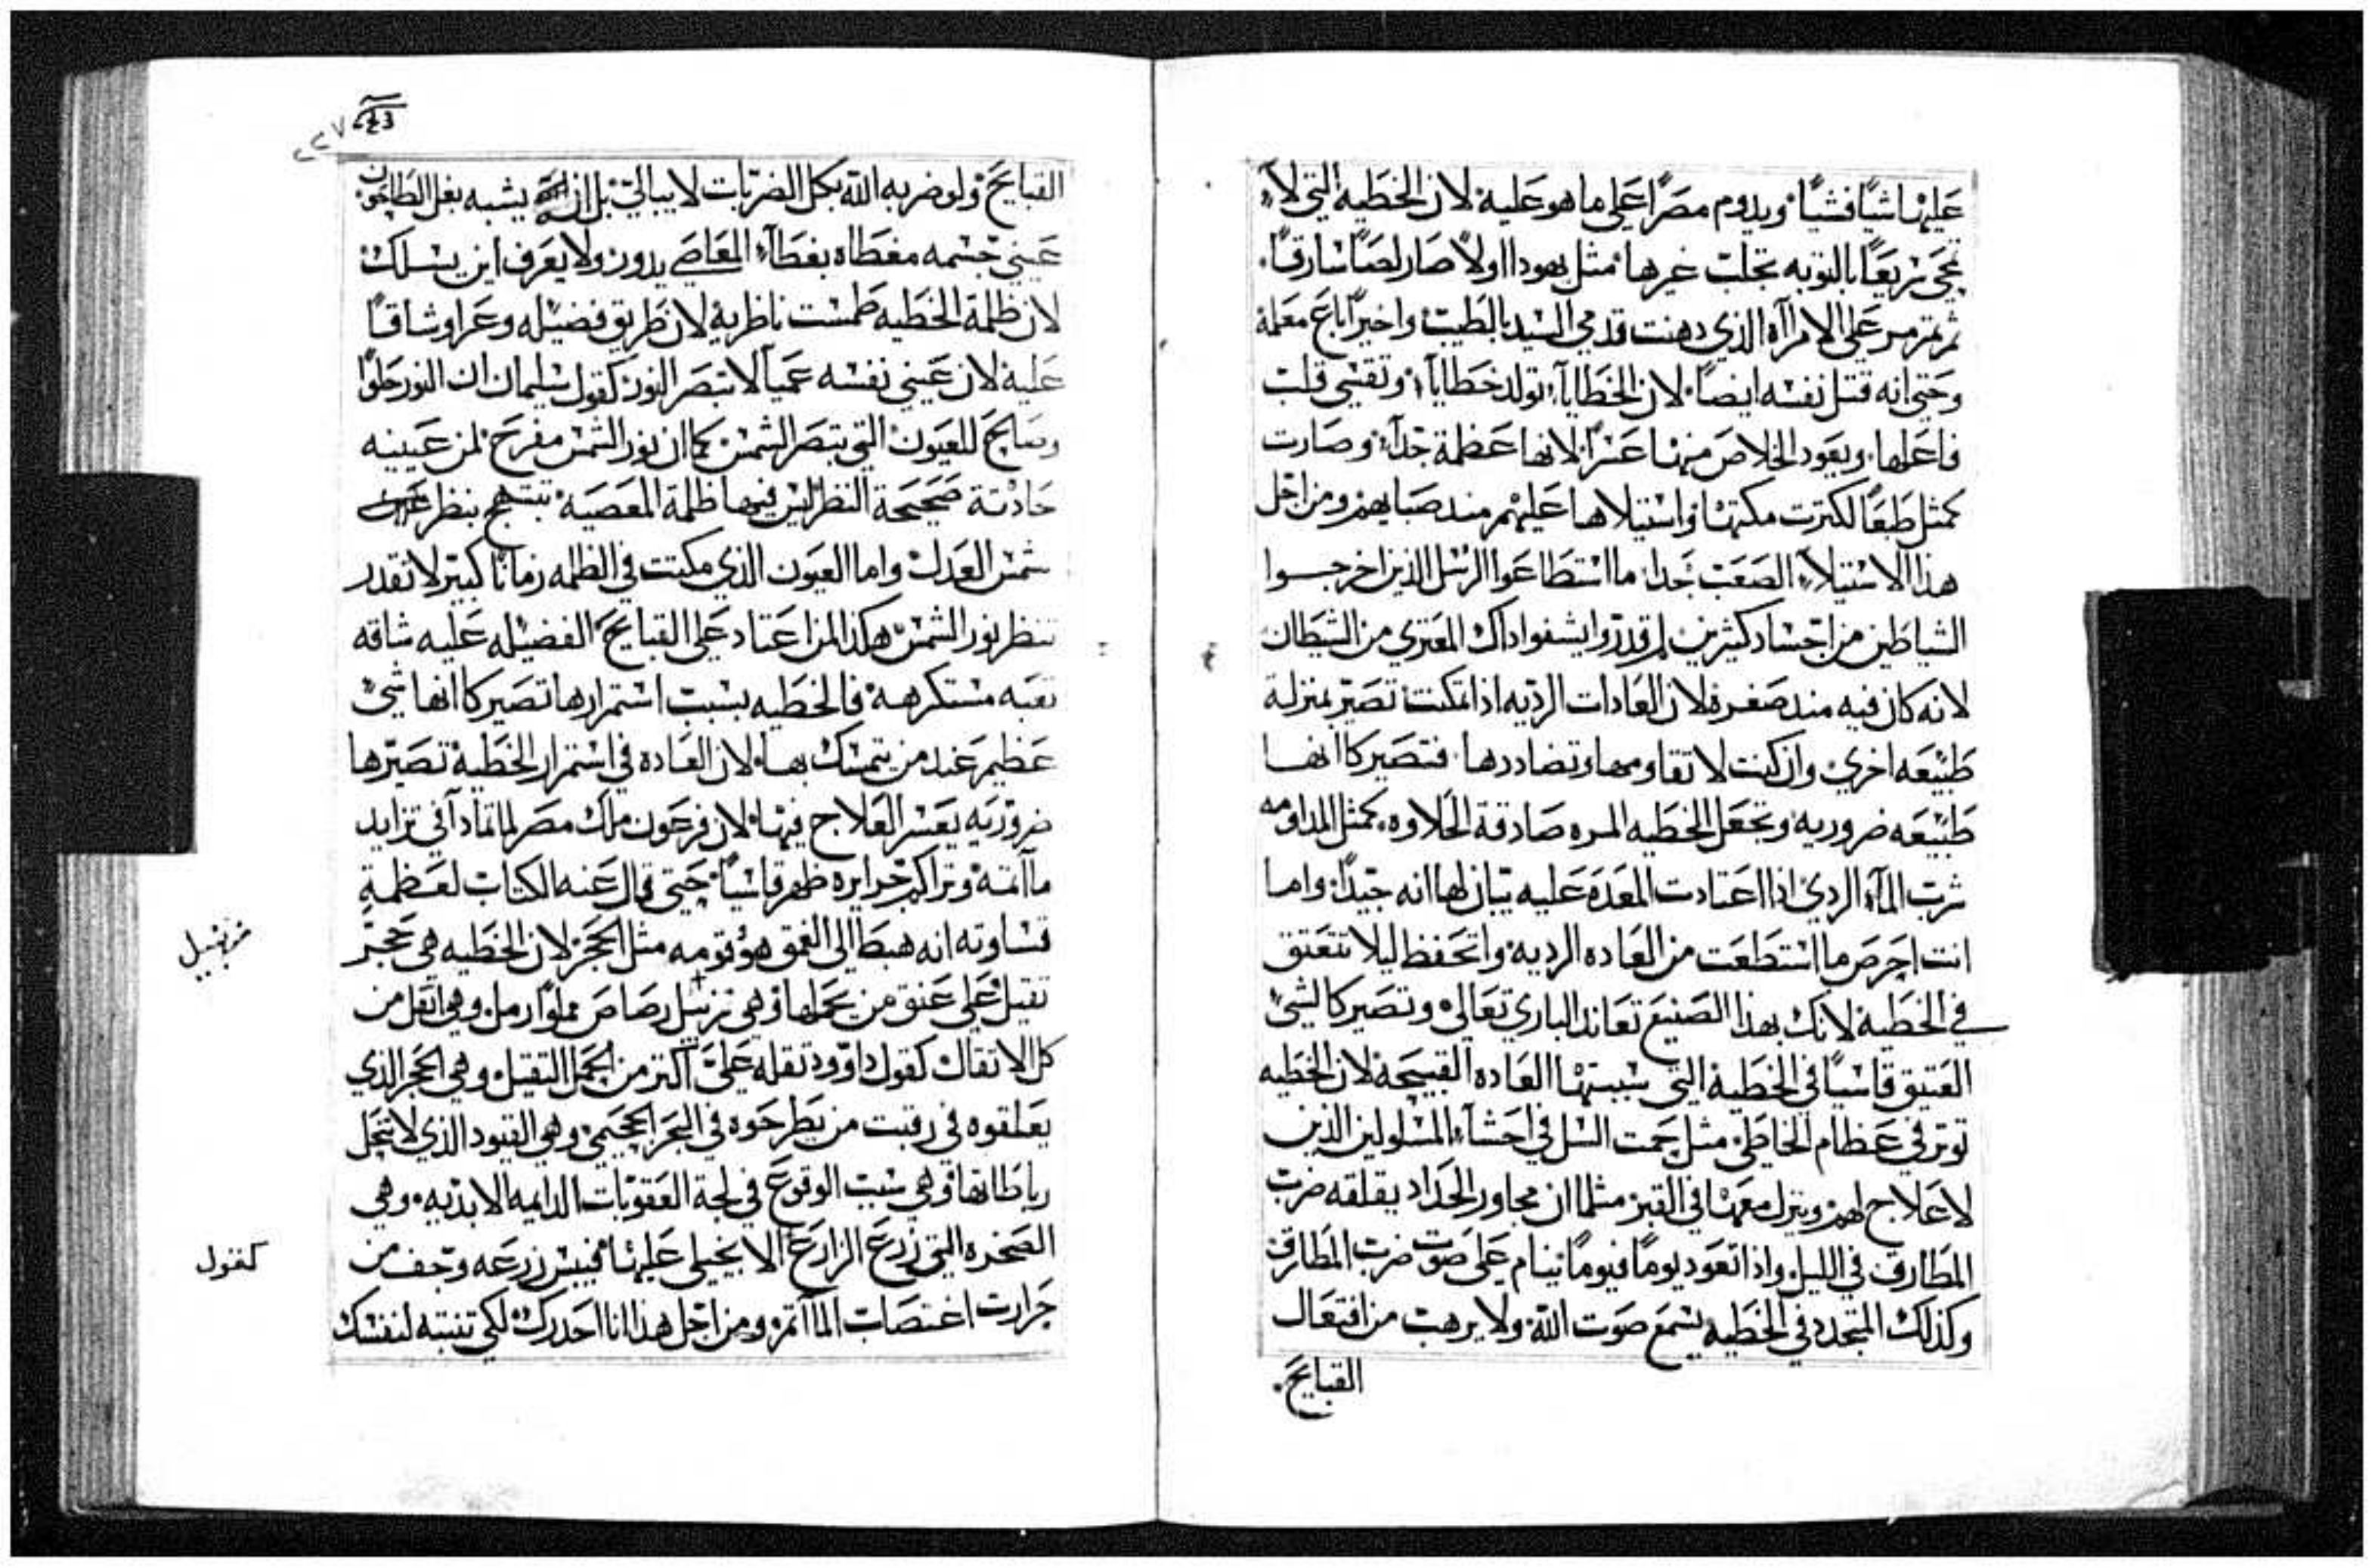 عليها شياً فشياً. ويدوم مصراً على ما هو عليه لان الخطيه التي لا
تمحي سريعاً بالتوبه تجلب غيرها. مثل يهودا اولاً صار لصاً سارقاً.
ثم تمرمر على الامراآه الذي دهنت قدمي السيد بالطيب واخيراً باع معلمه
وحتي انه قتل نفسه ايضاً. لان الخطايآء تولد خطايآء وتقسي قلب
فاعلها. ويعود الخلاص منها عسراً لانها عظمة جداً وصارت
كمثل طبعاً لكترت مكتها واستيلاها عليهم مند صبايهم ومن اجل
هذا الاستيلاء الصعب جدا. ما استطاعوا الرسل الذين اخرجوا
الشياطين من اجساد كثيرين لم قدروا يشفوا داك المعتري من الشيطان
لانه كان فيه مند صغره لان العادات الرديه اذا تمكنت تصير بمنزلة
طبيعه اخري وان كنت لا تقاومها وتضاددها. فتصير كاانها
طبيعه ضروريه وتجعل الخطيه المره صادقة الحلاوه. كمثل المداومه
شرب المآء الردي اذا اعتادت المعده عليه تبان لها انه جيداً. واما
انت احرص ما استطعت من العاده الرديه واتحفظ ليلا تتعتق
في الخطيه لانك بهذا الصنيع تعاند الباري تعالى وتصير كالشي
العتيق قاسياً في الخطيه التي سببتها العاده القبيحه لان الخطيه
توتر في عظام الخاطي مثل حمت السل في احشآء المسلولين الذين
لا علاج لهم وينزل معها في القبر مثلما ان مجاور الحداد يقلقه ضرب
المطارق في الليل واذا تعود يوماً فيوماً ينام على صوت ضرب المطارق
وكذلك المتجدد في الخطيه يسمع صوت الله ولا يرهب من افتعال
القبايح.
٢٢٧
القبايح ولو ضربه الله بكل الضربات لا يبالي بل ان يشبه بغل الطاحون
عيني جسمه مغطاه بغطآء المعاصي يدور ولا يعرف اين يسلك
لان ظلمة الخطيه طمست ناظريه لان طريق فضيله وعرا وشاقاً
عليه لان عيني نفسه عميآ لا تبصر النور كقول سليمان ان النور حلواً
وصالح للعيون التي تبصر الشمس كما ان نور الشمس مفرح لمن عينيه
حادته صحيحة النظر ليس فيها ظلمة المعصيه تبتهج بنظر
شمس العدل واما العيون الذي مكتت في الظلمه زماناً كبير لا تقدر
تنظر نور الشمس هكذا لمن اعتاد على القبايح الفضيله عليه شاقه
تعبه مستكرهه فالخطيه بسبب استمرارها تصير كاانها شي
عظيم عند من يتمسك بها لان العاده في استمرار الخطيه تصيرها
ضروريه يعسر العلاج فيها لان فرعون ملك مصر لما تمادآ في تزايد
مآاتمه وتراكم جرايره ظهر قاسياً حتي قال عنه الكتاب لعظمة
قساوته انه هبط الى العمق هو وقومه مثل الحجر لان الخطيه هي حجر
تقيل على عنق من يحملها وهي رصاص مملوا رمل وهي اتقل من
كل الاتقال كقول داوود تقله علي اكتر من الجمل التقيل وهي الحجر الذي
يعلقوه في رقبت من يطرحوه في البحر الجحيمي وهي القيود الذي لا تحل
رباطاتها وهي سبب الوقوع في لجة العقوبات الدايمه الابديه. وهي
الصخره التي زرع الزارع الا يخيلى عليها فيبس زرعه وجف من
حرارت اغتصاب المآاتم ومن اجل هذا انا احدرك لكي تنتبه لنفسك
كقول